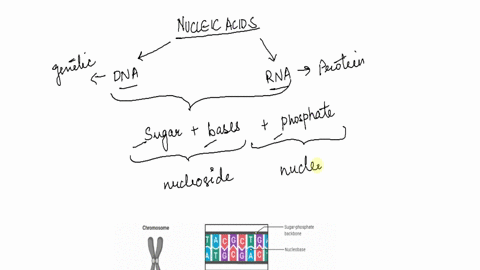 NUCLEIC ACIDS
genetic ← DNA RNA → Protein
Sugar + bases + phosphate
nucleoside nucle
Chromosome
Sugar-phosphate
backbone
Nucleobase
T A C G C T G
A T G C G A C